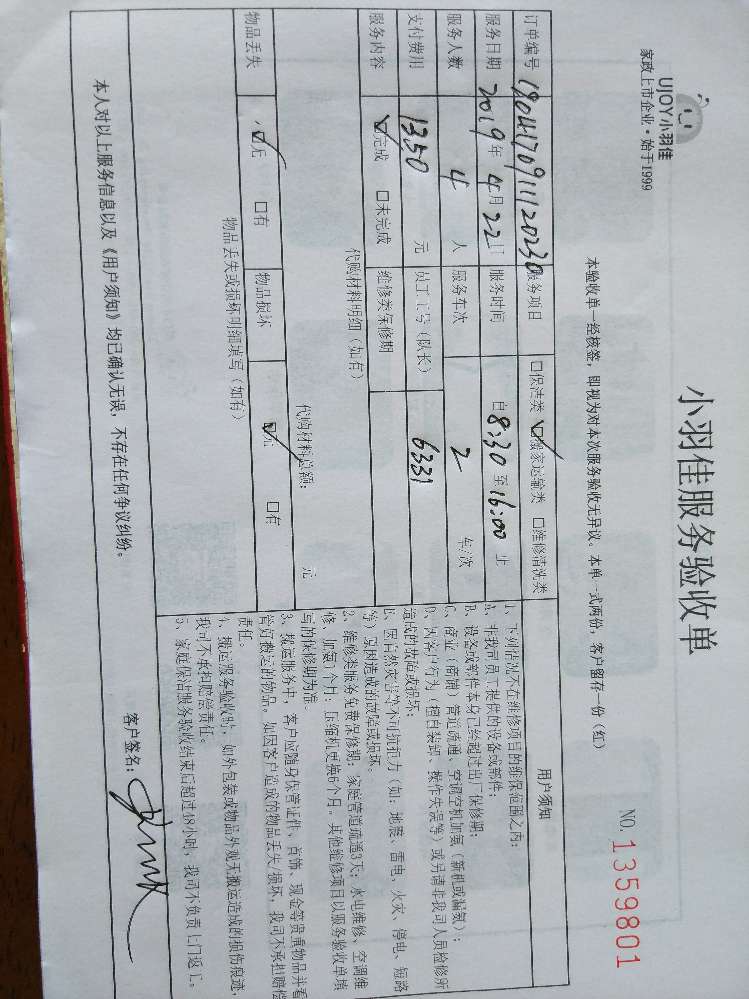 UJOY小羽佳
家政上市企业·始于1999
小羽佳服务验收单
NO. 1359801
本验收单一经核签，即视为对本次服务验收无异议。本单一式两份，客户留存一份（红）
订单编号 190417091120230 服务项目 □保洁类 ☑搬家运输类 □维修清洗类
服务日期 2019年4月22日 服务时间 自8:30至16:00止
服务人数 4 人 服务车次 2 车/次
支付费用 1350 元 员工工号（队长） 6331
服务内容 ☑完成 □未完成 维修类保修期
代购材料明细（如有）
代购材料总额： 元
物品丢失 ☑无 □有 物品损坏 ☑无 □有
物品丢失或损坏明细填写（如有）
用户须知
1、下列情况不在维修项目的维保范围之内：
A、非我司员工提供的设备或部件；
B、设备或部件本身已经超过出厂保修期；
C、商业（商铺）管道疏通、空调空机加氨（新机或漏氨）；
D、因客户行为（擅自装卸、操作失误等）或另请非我司人员检修所
造成的故障或损坏；
E、因自然灾害等不可抗拒力（如：地震、雷电、火灾、停电、短路
等）原因造成的故障或损坏。
2、维修类服务免费保修期：家庭管道疏通3天；水电维修、空调维
修、加氨1个月；压缩机更换6个月。其他维修项目以服务验收单填
写的保修期为准。
3、搬运服务中，客户应随身保管证件、首饰、现金等贵重物品并看
管好搬运的物品。如因客户造成的物品丢失/损坏，我司不承担赔偿
责任。
4、搬运服务验收时，如外包装或物品外观无搬运造成的损伤痕迹，
我司不承担赔偿责任。
5、家庭保洁服务验收结束后超过48小时，我司不负责上门返工。
本人对以上服务信息以及《用户须知》均已确认无误，不存在任何争议纠纷。
客户签名：